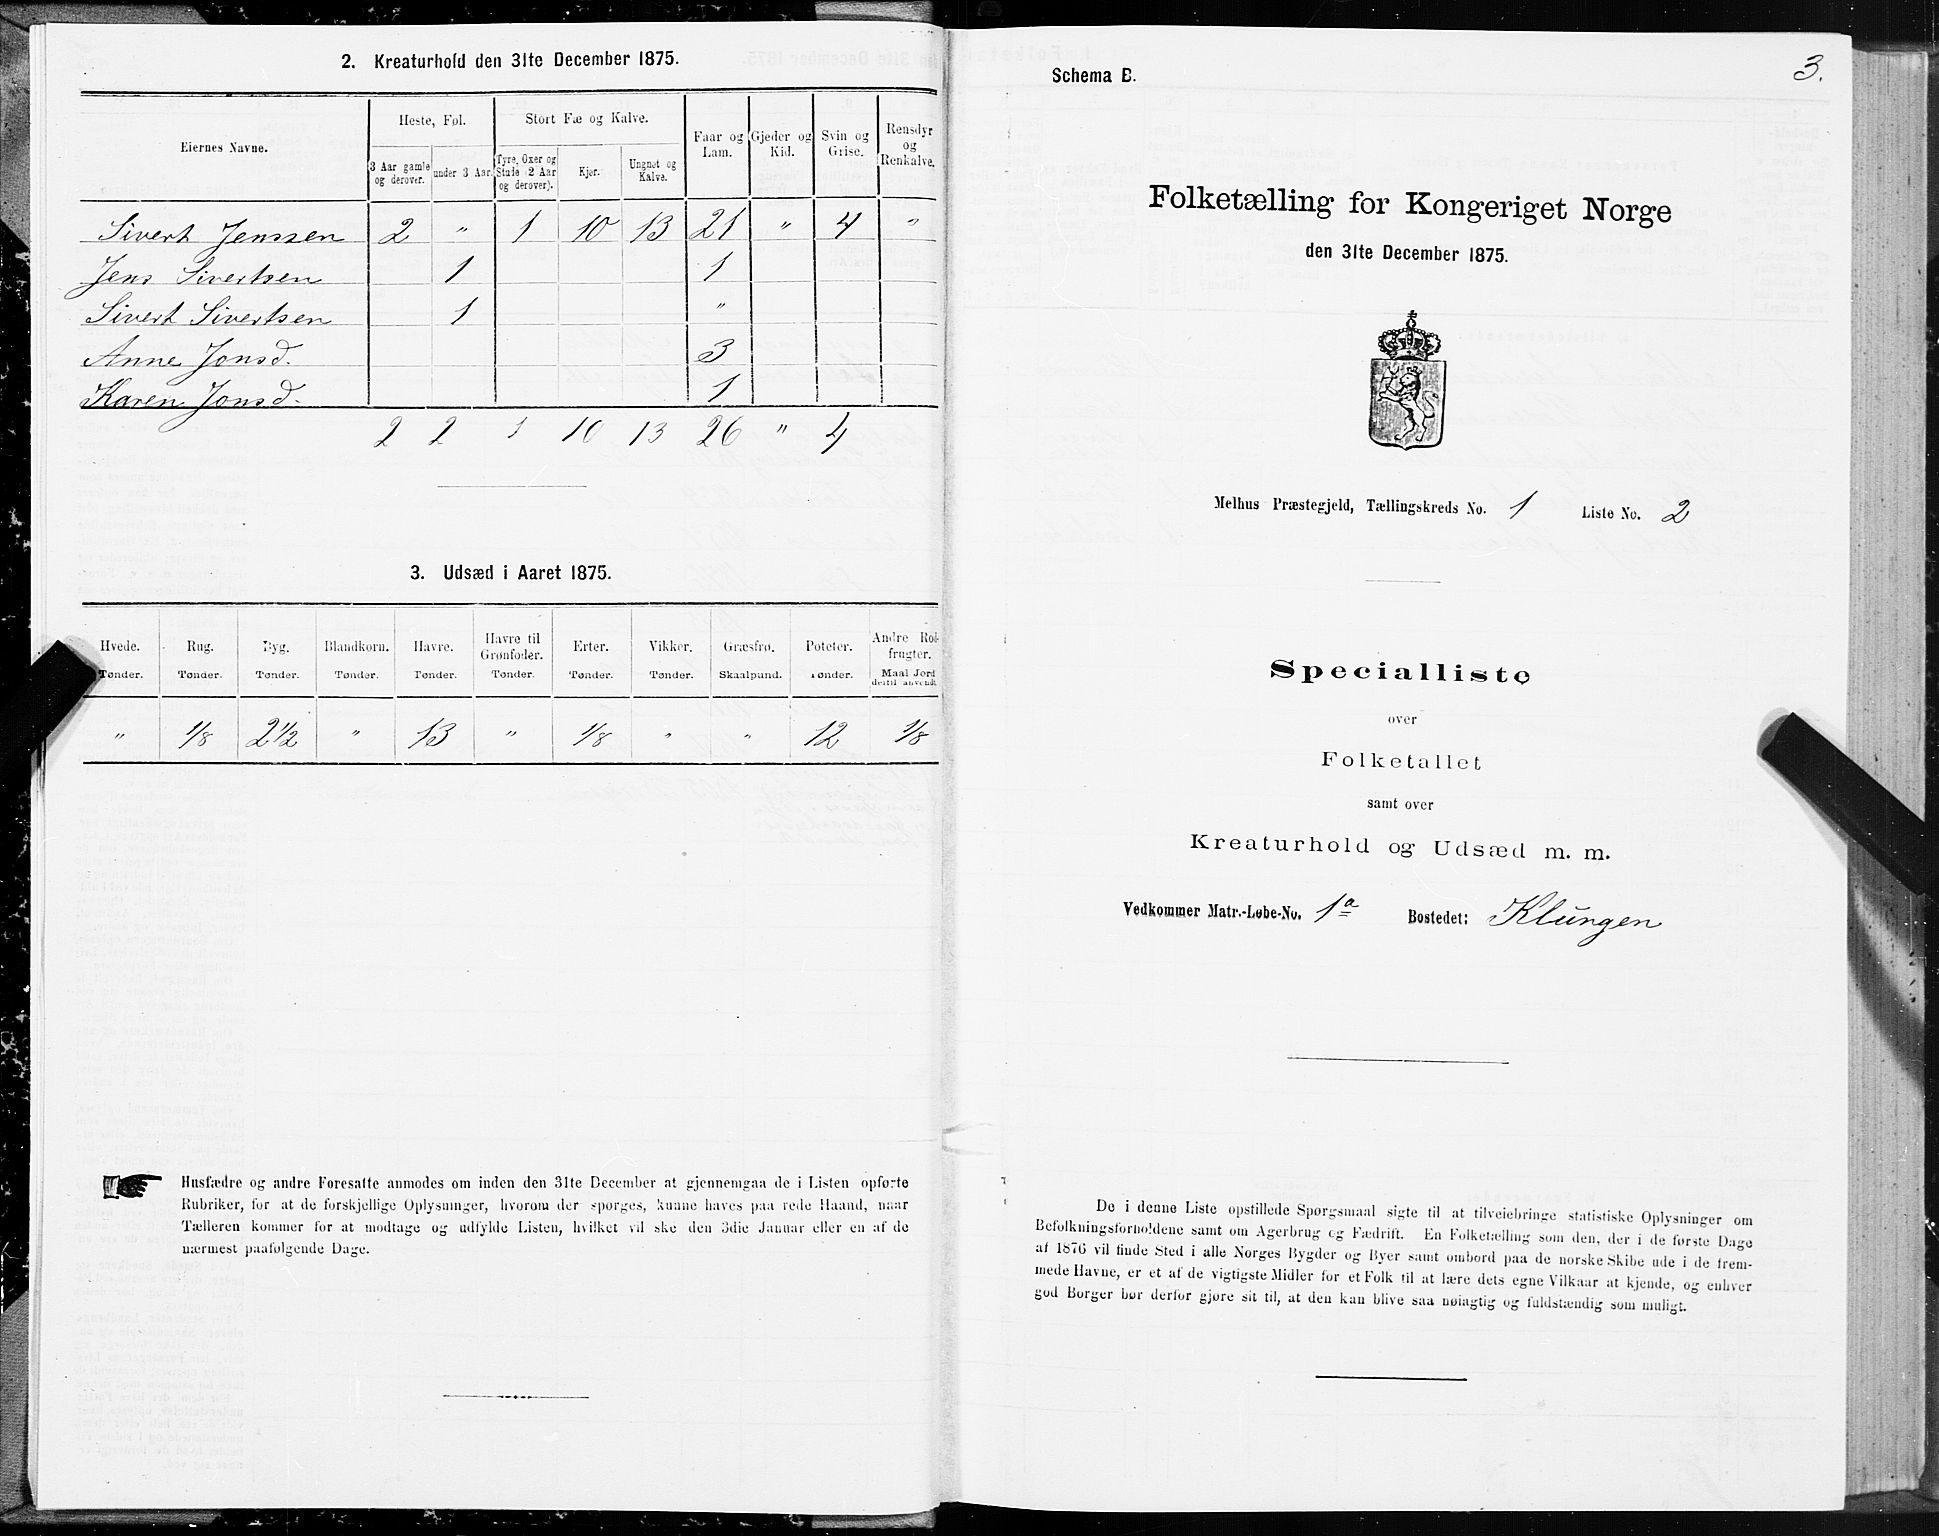 2. Kreaturhold den 31te December 1875.
Eiernes Navne.
Heste, Føl.
Stort Fæ og Kalve.
Faar og Lam.
Gjeder og Kid.
Svin og Grise.
Rensdyr og Renkalve.
3 Aar gamle og derover.
under 3 Aar.
Tyre, Oxer og Stude (2 Aar og derover).
Kjør.
Ungnøt og Kalve.
Sivert Jenssen 2 " 1 10 13 21 " 4 "
Jens Sivertsen 1 1
Sivert Sivertsen 1 "
Anne Jonsd. 3
Karen Jonsd. 1
2 2 1 10 13 26 " 4
3. Udsæd i Aaret 1875.
Hvede. Rug. Byg. Blandkorn. Havre. Havre til Grønfoder. Erter. Vikker. Græsfrø. Poteter. Andre Rodfrugter.
Tønder. Tønder. Tønder. Tønder. Tønder. Tønder. Tønder. Tønder. Skaalpund. Tønder. Maal Jord dertil anvendt.
" 1/8 2 1/2 " 13 " 1/8 " " 12 1/8
Husfædre og andre Foresatte anmodes om inden den 31te December at gjennemgaa de i Listen opførte
Rubriker, for at de forskjellige Oplysninger, hvorom der spørges, kunne haves paa rede Haand, naar
Tælleren kommer for at modtage og udfylde Listen, hvilket vil ske den 3die Januar eller en af de
nærmest paafølgende Dage.
3.
Schema B.
Folketælling for Kongeriget Norge
den 31te December 1875.
Melhus Præstegjeld, Tællingskreds No. 1 Liste No. 2
Specialliste
over
Folketallet
samt over
Kreaturhold og Udsæd m. m.
Vedkommer Matr.-Løbe-No. 1a Bostedet: Klungen
De i denne Liste opstillede Spørgsmaal sigte til at tilveiebringe statistiske Oplysninger om
Befolkningsforholdene samt om Agerbrug og Fædrift. En Folketælling som den, der i de første Dage
af 1876 vil finde Sted i alle Norges Bygder og Byer samt ombord paa de norske Skibe ude i de frem-
mede Havne, er et af de vigtigste Midler for et Folk til at lære dets egne Vilkaar at kjende, og enhver
god Borger bør derfor gjøre sit til, at den kan blive saa nøiagtig og fuldstændig som muligt.